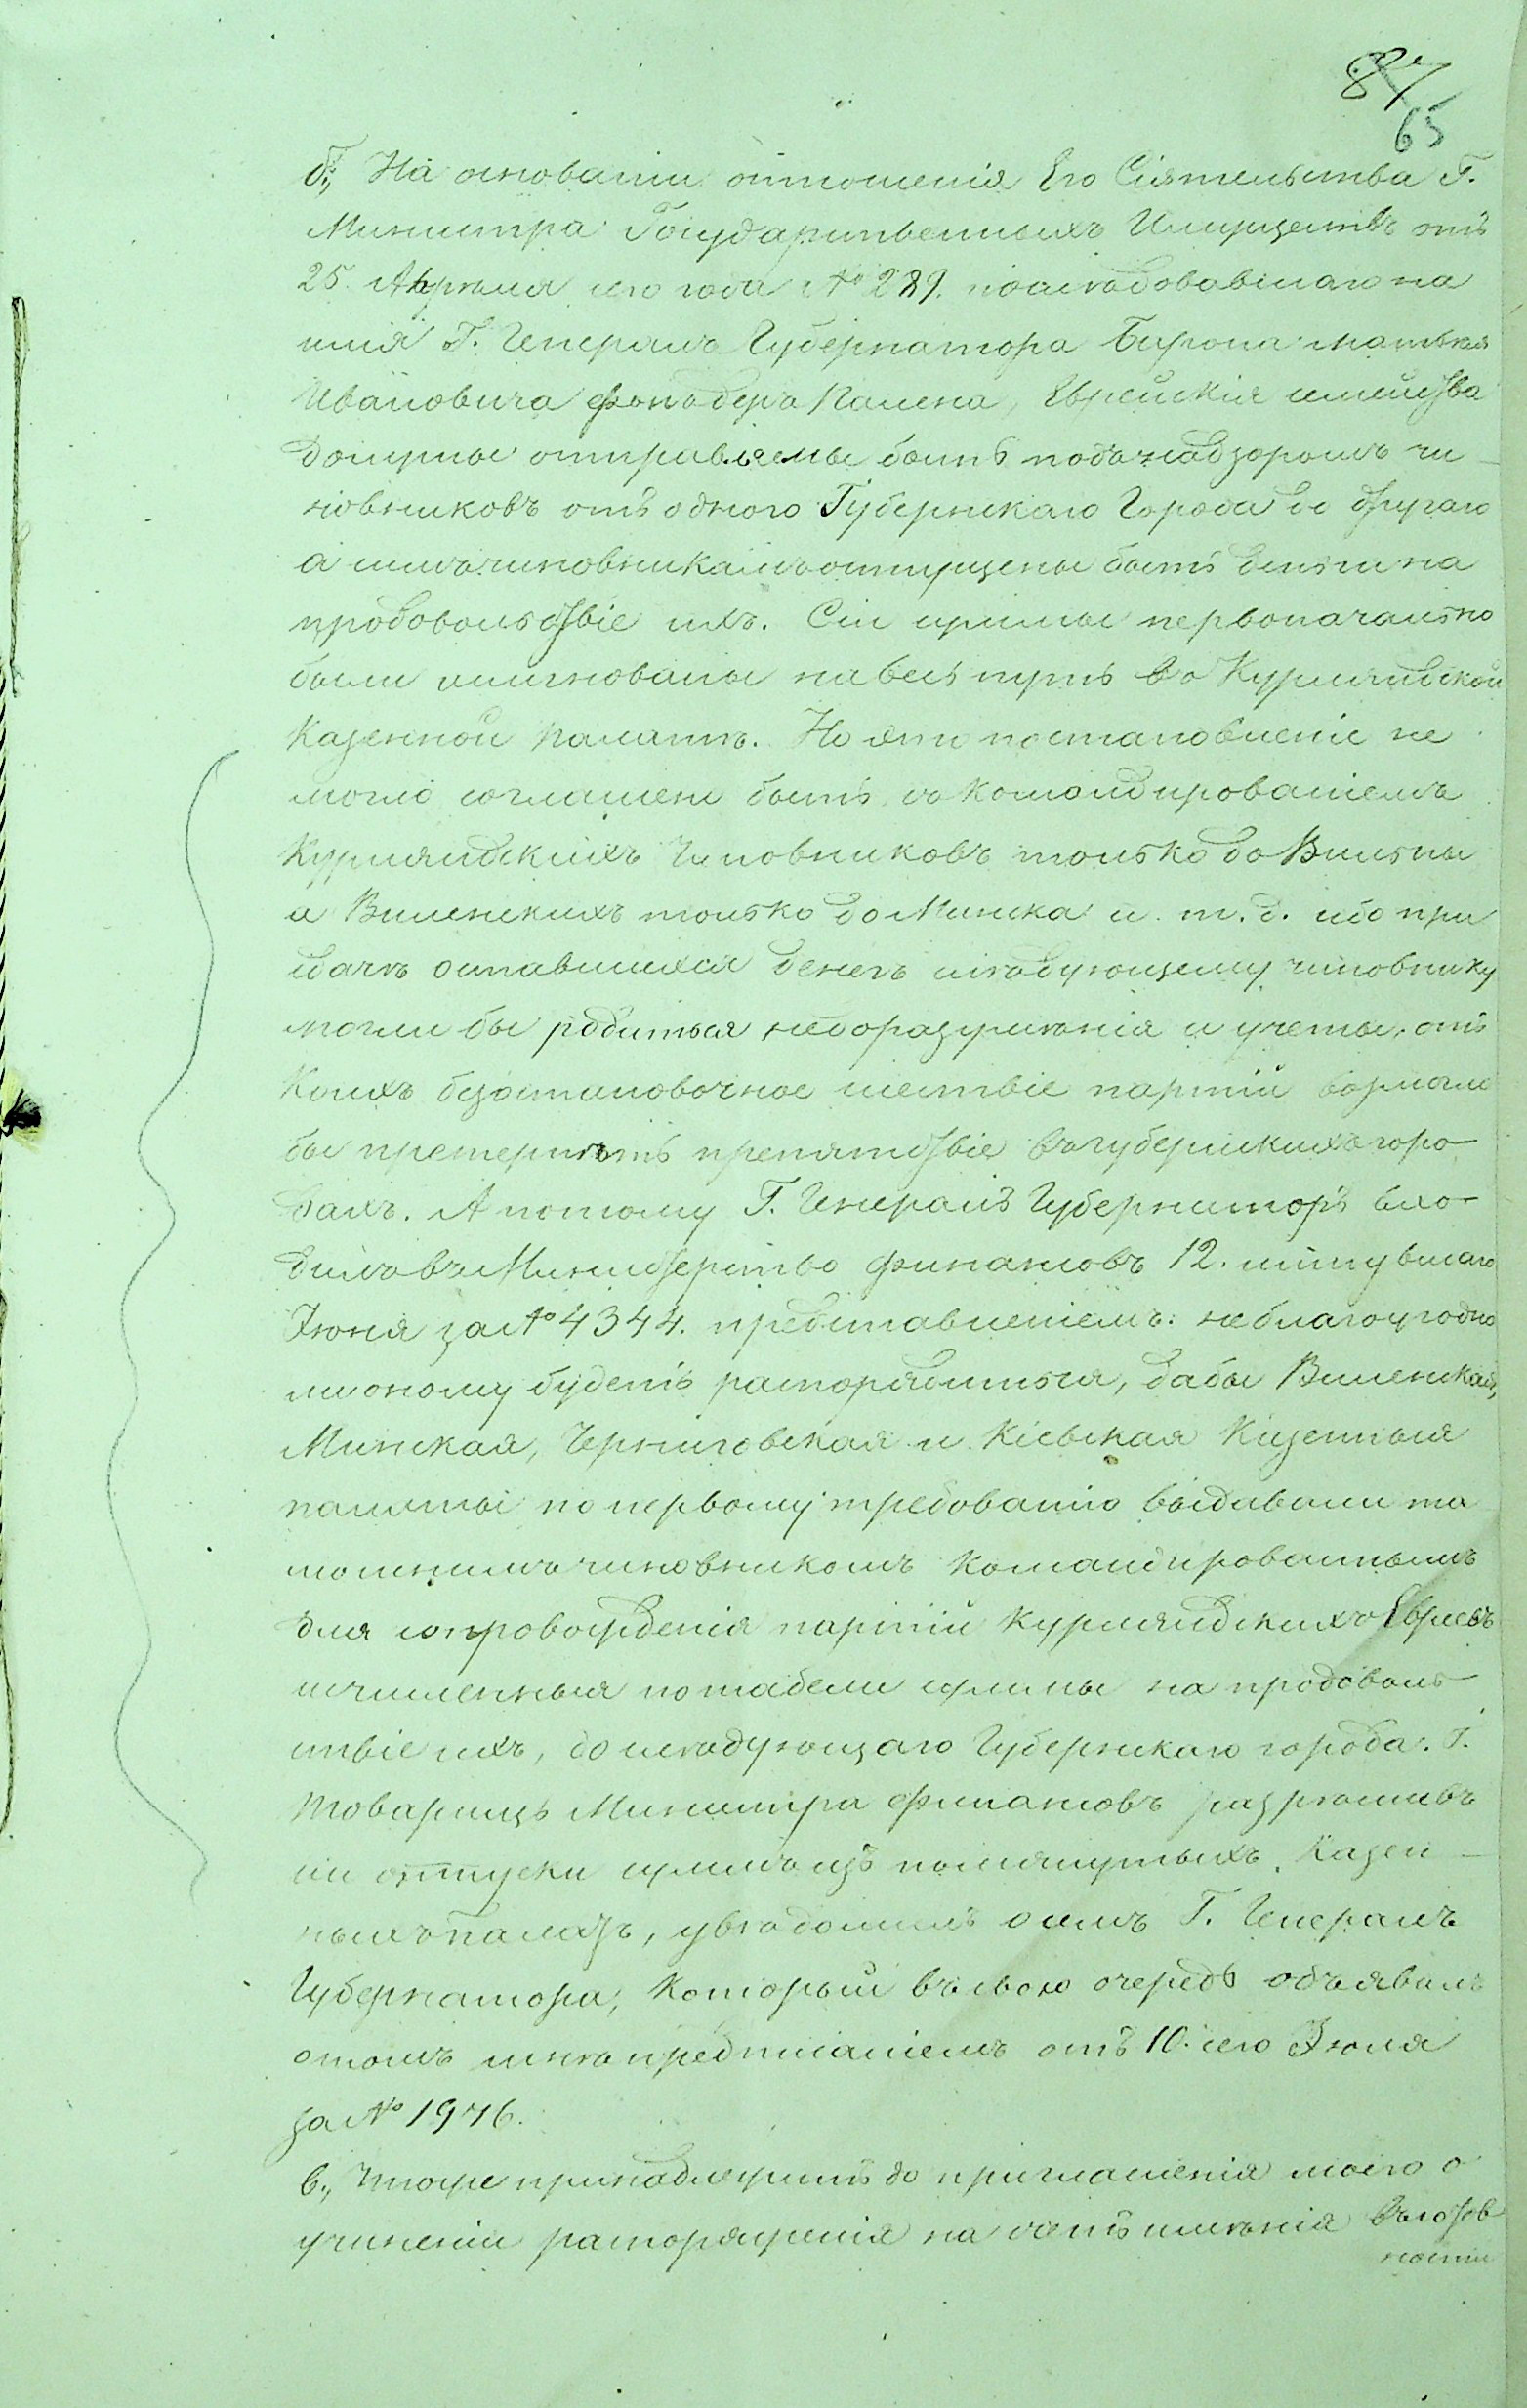 87
65
б., На основаніи отношенія Его Сіятельства Г.
Министра Государственныхъ Имуществъ отъ
25. Апрѣля сего года № 289. послѣдовавшаго на
имя Г. Генералъ Губернатора Барона Матвея
Ивановича фонъ деръ Палена, Еврейскія семейства
должны отправляемы быть подъ надзоромъ чи-
новниковъ отъ одного Губернскаго Города до другаго
а симъ чиновникамъ отпущены быть деньги на
продовольствіе ихъ. Сіи суммы первоначально
были ассигнованы на весь путь въ Курляндской
Казенной Палатѣ. Но это постановленіе не
могло соглашено быть съ командированіемъ
Курляндскихъ Чиновниковъ только до Вильны
а Виленскихъ только до Минска и. т. д. ибо при
сдачѣ оставшихся денегъ слѣдующему чиновнику
могли бы родиться недоразумѣнія и учеты, отъ
коихъ безостановочное шествіе партій возмогло
бы претерпѣть препятствіе въ губернскихъ горо-
дахъ. А потому Г. Генералъ Губернаторъ вхо-
дилъ въ Министерство Финансовъ 12. минувшаго
Іюня за № 4344. представленіемъ: не благоугодно
ли оному будетъ распорядиться, дабы Виленская,
Минская, Черниговская и Кіевская Казенныя
палаты по первому требованію выдавали та
мошнимъ чиновникомъ командированнымъ
для сопровожденія партій Курляндскихъ Евреевъ
исчисленныя по табели суммы на продоволь-
ствіе ихъ, до слѣдующаго Губернскаго города. Г.
Товарищъ Министра Финансовъ разрѣшивъ
сіи отпуски суммъ изъ помянутыхъ Казен-
ныхъ палатъ, увѣдомилъ о семъ Г. Генералъ
Губернатора, который въ свою очередь объявилъ
о томъ мнѣ предписаніемъ отъ 10. сего Іюля
за № 1976.
в., Чтоже принадлежитъ до приглашенія моего о
учиненіи распоряженія на счетъ имѣнія въ готов
ности